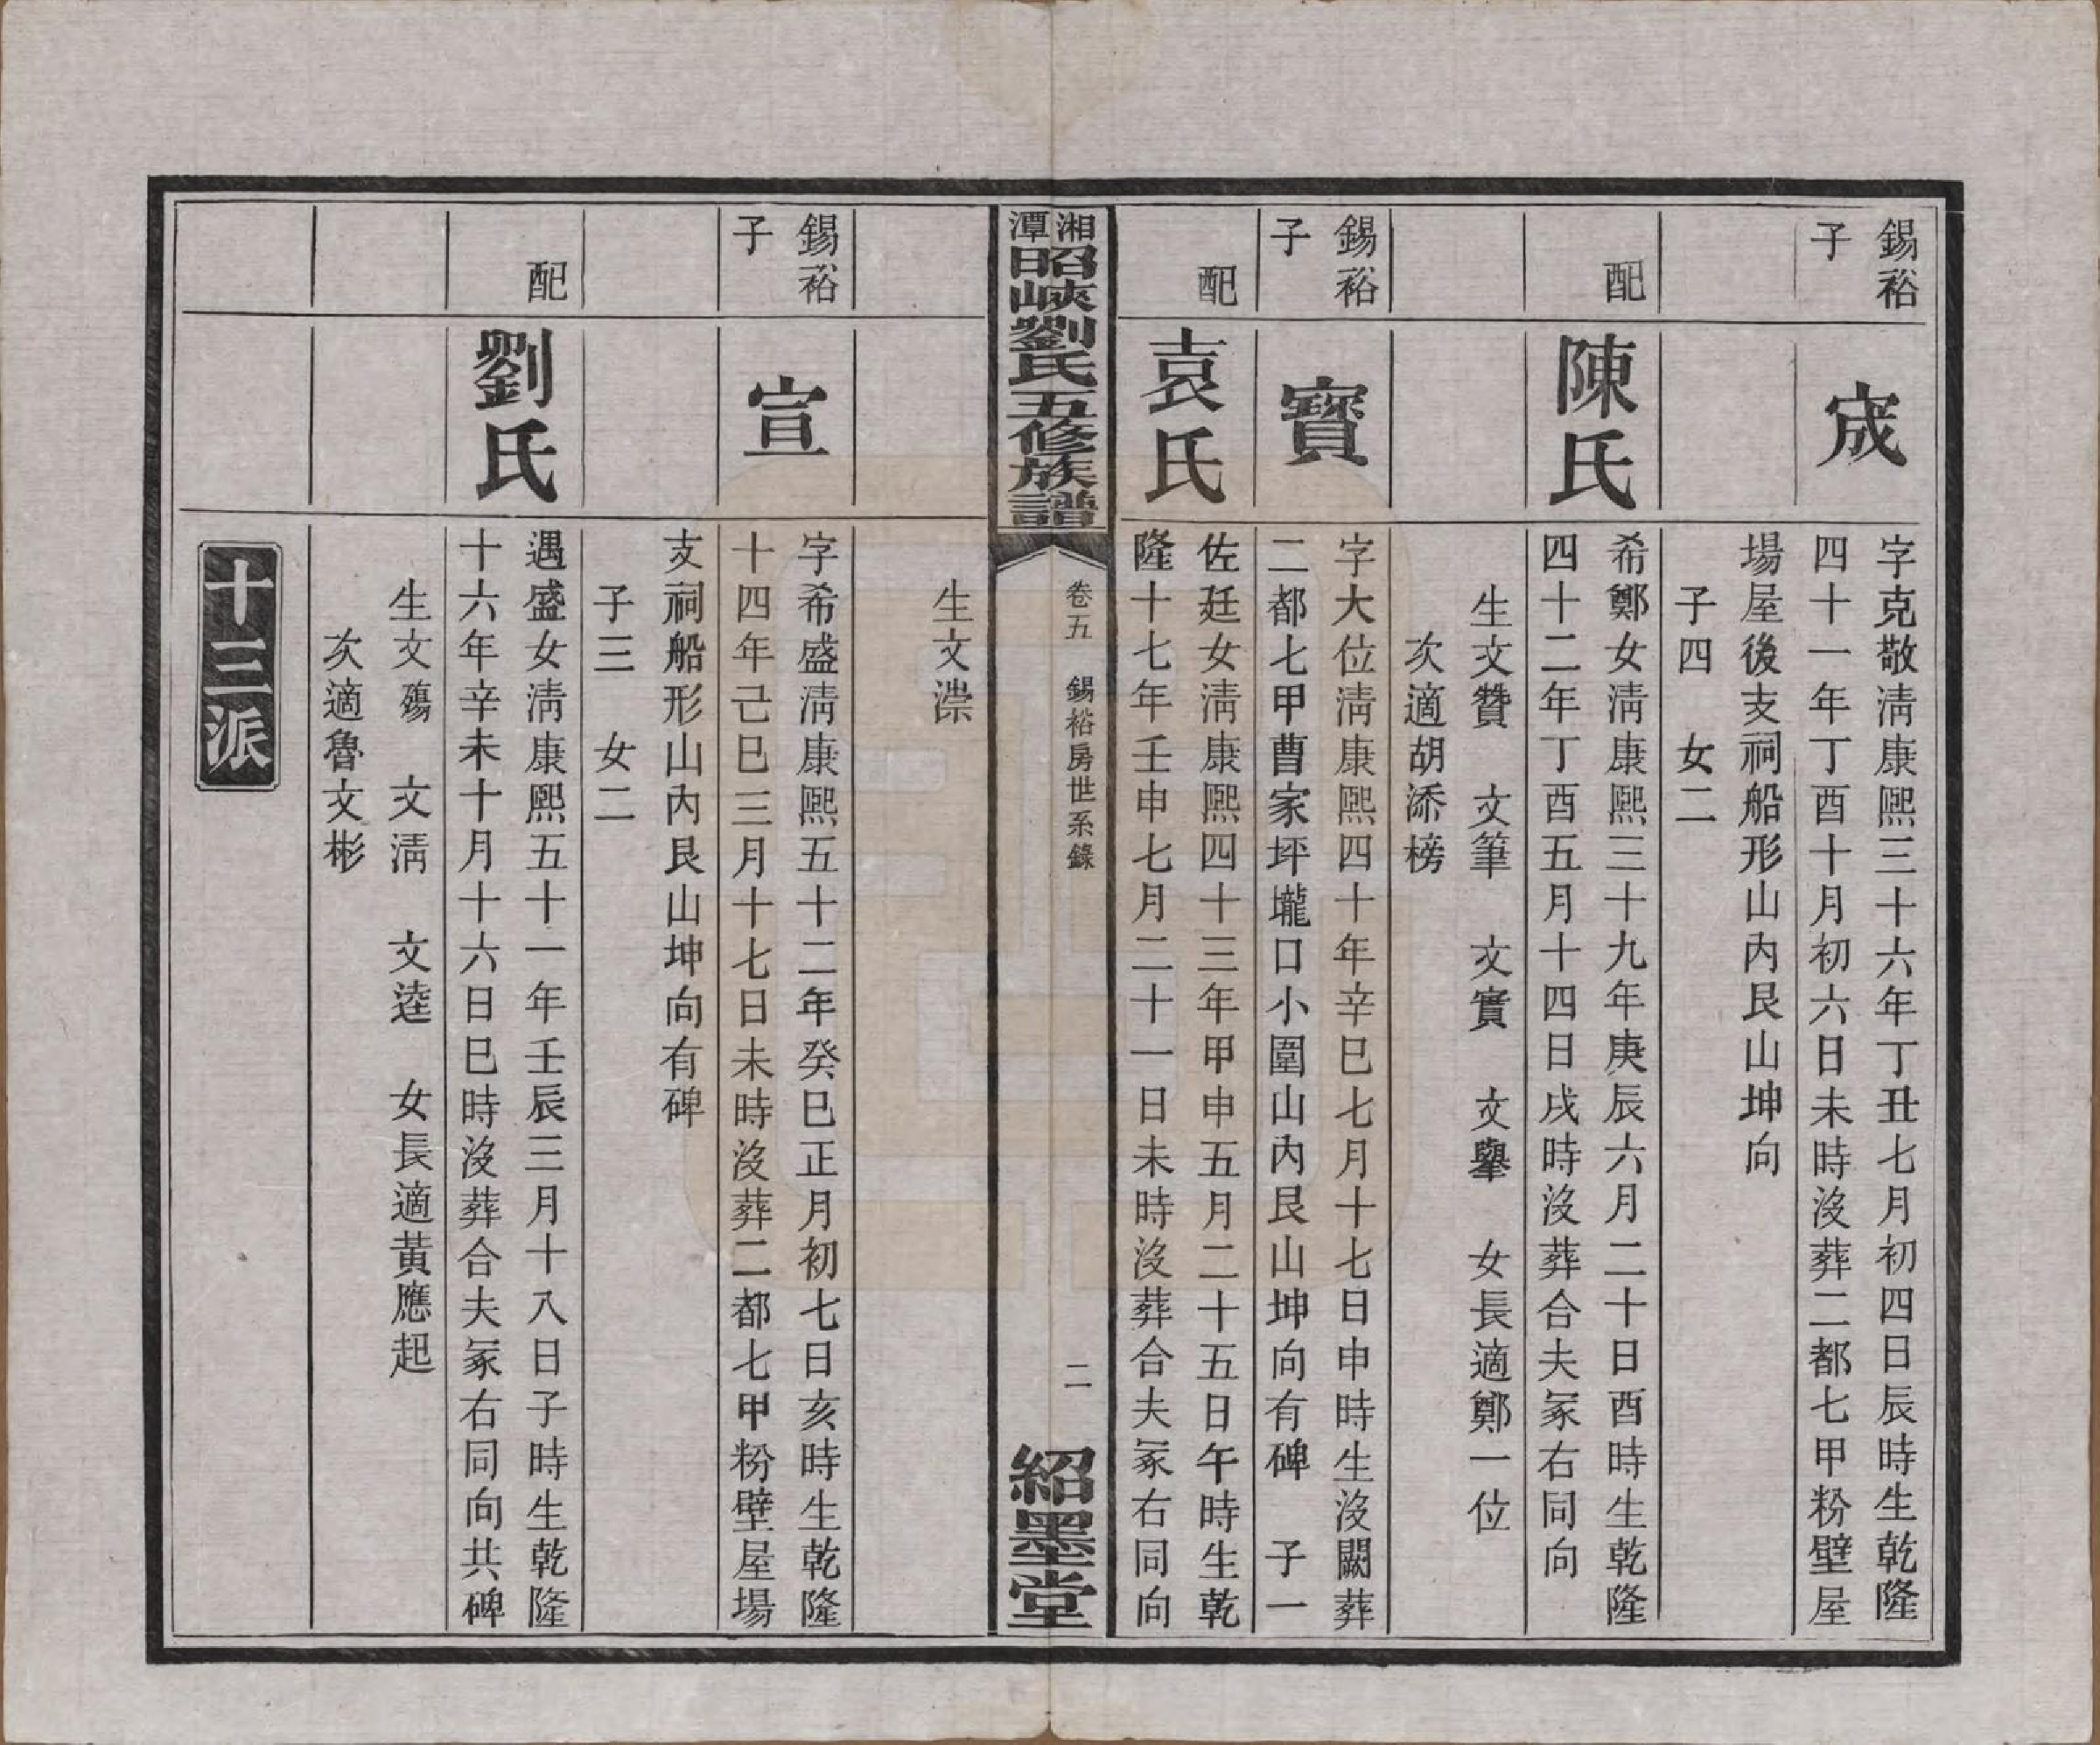 錫裕
子
宬
字克敬淸康熙三十六年丁丑七月初四日辰時生乾隆
四十一年丁酉十月初六日未時沒葬二都七甲粉壁屋
場屋後支祠船形山內艮山坤向
子四　女二
配
陳氏
希鄭女淸康熙三十九年庚辰六月二十日酉時生乾隆
四十二年丁酉五月十四日戌時沒葬合夫冢右同向
生文贊　文筆　文實　文舉　女長適鄭一位
次適胡添榜
錫裕
子
寳
字大位淸康熙四十年辛巳七月十七日申時生沒闕葬
二都七甲曹家坪壠口小圍山內艮山坤向有碑　子一
配
袁氏
佐廷女淸康熙四十三年甲申五月二十五日午時生乾
隆十七年壬申七月二十一日未時沒葬合夫冢右同向
湘潭昭峽劉氏五修族譜
卷五　錫裕房世系錄
二
紹墨堂
生文漴
錫裕
子
宣
字希盛淸康熙五十二年癸巳正月初七日亥時生乾隆
十四年己巳三月十七日未時沒葬二都七甲粉壁屋場
支祠船形山內艮山坤向有碑
子三　女二
配
劉氏
遇盛女淸康熙五十一年壬辰三月十八日子時生乾隆
十六年辛未十月十六日巳時沒葬合夫冢右同向共碑
生文殤　文淸　文逵　女長適黃應起
次適魯文彬
十三派